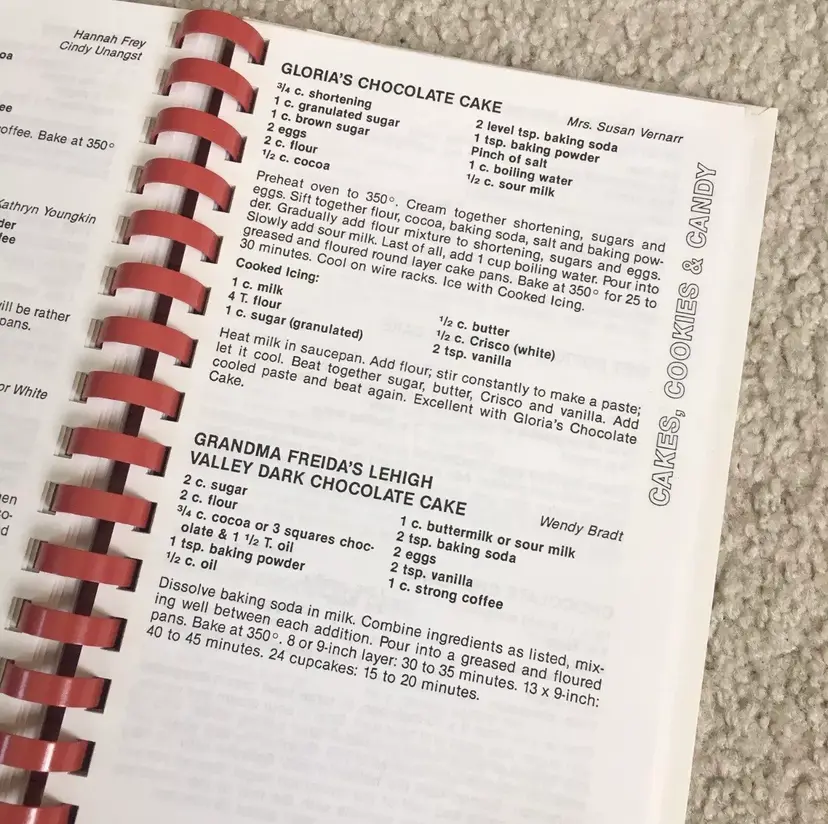 Hannah Frey
Cindy Unangst
oa
ee
offee. Bake at 350°
Kathryn Youngkin
der
fee
ill be rather
pans.
or White
en
co-
d
GLORIA'S CHOCOLATE CAKE
Mrs. Susan Vernarr
3/4 c. shortening
1 c. granulated sugar
1 c. brown sugar
2 eggs
2 c. flour
1/2 c. cocoa
2 level tsp. baking soda
1 tsp. baking powder
Pinch of salt
1 c. boiling water
1/2 c. sour milk
Preheat oven to 350°. Cream together shortening, sugars and
eggs. Sift together flour, cocoa, baking soda, salt and baking pow-
der. Gradually add flour mixture to shortening, sugars and eggs.
Slowly add sour milk. Last of all, add 1 cup boiling water. Pour into
greased and floured round layer cake pans. Bake at 350° for 25 to
30 minutes. Cool on wire racks. Ice with Cooked Icing.
Cooked Icing:
1 c. milk
4 T. flour
1 c. sugar (granulated)
1/2 c. butter
1/2 c. Crisco (white)
2 tsp. vanilla
Heat milk in saucepan. Add flour; stir constantly to make a paste;
let it cool. Beat together sugar, butter, Crisco and vanilla. Add
cooled paste and beat again. Excellent with Gloria's Chocolate
Cake.
GRANDMA FREIDA'S LEHIGH
VALLEY DARK CHOCOLATE CAKE
Wendy Bradt
2 c. sugar
2 c. flour
3/4 c. cocoa or 3 squares choc-
olate & 1 1/2 T. oil
1 tsp. baking powder
1/2 c. oil
1 c. buttermilk or sour milk
2 tsp. baking soda
2 eggs
2 tsp. vanilla
1 c. strong coffee
Dissolve baking soda in milk. Combine ingredients as listed, mix-
ing well between each addition. Pour into a greased and floured
pans. Bake at 350°. 8 or 9-inch layer: 30 to 35 minutes. 13 x 9-inch:
40 to 45 minutes. 24 cupcakes: 15 to 20 minutes.
CAKES, COOKIES & CANDY